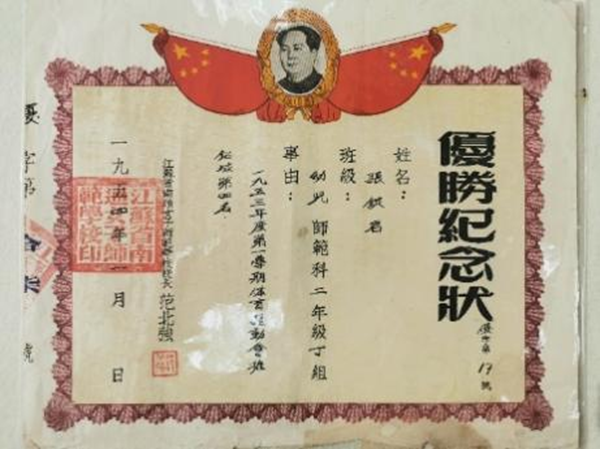 優勝紀念狀
優字第 17 號
姓名：
張
班級：
幼兒師範科二年級丁組
事由：
一九五三年度第一學期体育運動會
第四名
江蘇省南通女子師範學校校長 范北強
江蘇省南通女子師範學校印
一九五四年一月 日
優字第
號